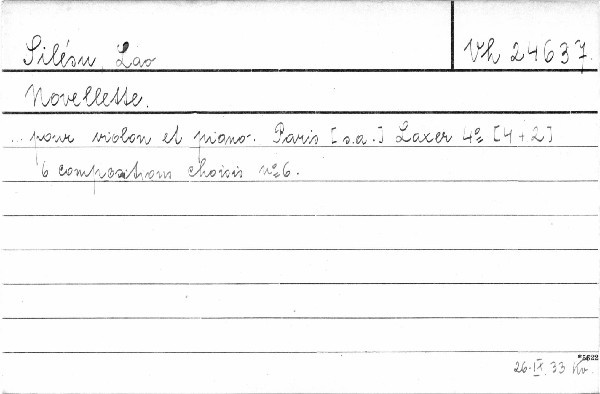 Silésu, Lao Vh 24637.
Novellette.
... pour violon et piano. Paris [s.a.] Laxer 4º [4+2]
6 compositions choisis nº 6.
*5622
26.IX.33 Kv.